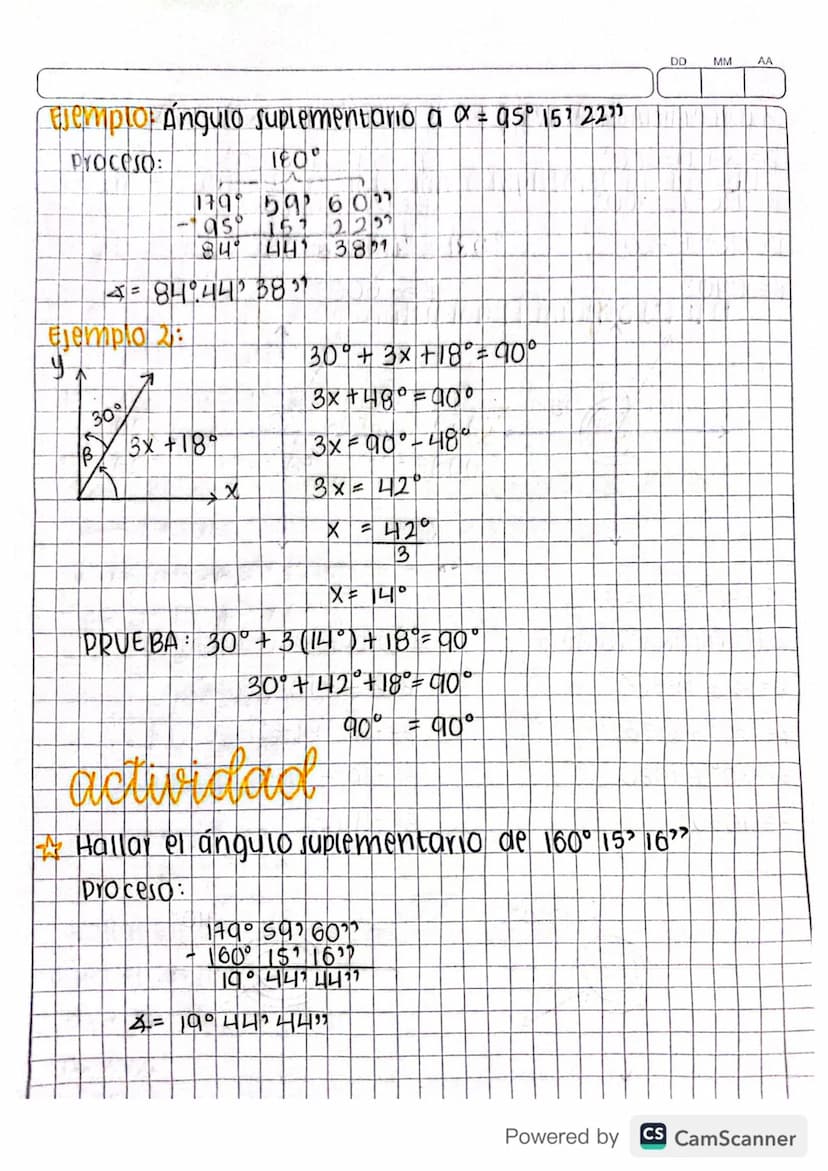 DD MM AA
Ejemplo: Ángulo suplementario a α = 95° 15' 22''
Proceso: 180°
179° 59' 60''
- 95° 15' 22''
84° 44' 38''
∡ = 84° 44' 38''
Ejemplo 2:
y
30°
β
3x + 18°
x
30° + 3x + 18° = 90°
3x + 48° = 90°
3x = 90° - 48°
3x = 42°
x = 42°
3
x = 14°
PRUEBA: 30° + 3(14°) + 18° = 90°
30° + 42° + 18° = 90°
90° = 90°
actividad
☆ Hallar el ángulo suplementario de 160° 15' 16''
Proceso:
179° 59' 60''
- 160° 15' 16''
19° 44' 44''
∡ = 19° 44' 44''
Powered by CS CamScanner